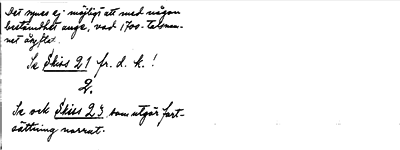 Det synes ej möjligt att med någon
bestämdhet ange, vad 1700-talsnum-
ret åsyftat.
Se Skiss 21 fr. d. k.!
2.
Se ock Skiss 23 som utgör fort-
sättning norrut.